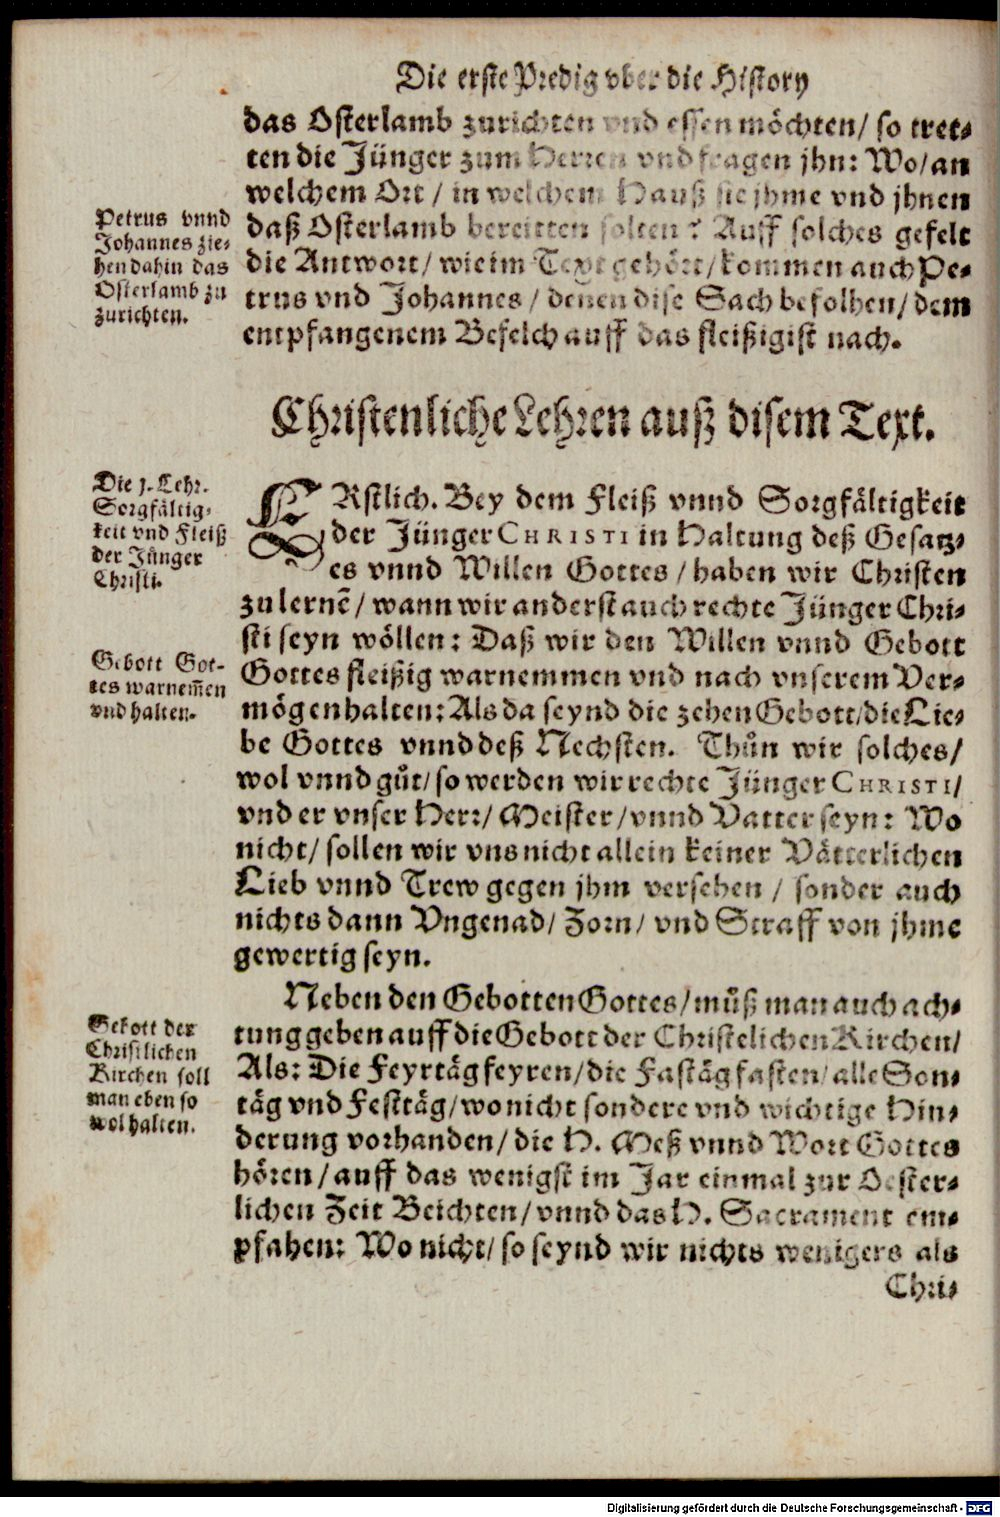 Die erste Predig vber die History
das Osterlamb zurichten vnd essen möchten/ so tret-
ten die Jünger zum Herren vnd fragen jhn: Wo/ an
welchem Ort / in welchem Hauß sie jhme vnd jhnen
daß Osterlamb bereitten solten? Auff solches gefelt
die Antwort/ wie im Text gehört/ kommen auch Pe-
trus vnd Johannes / denen dise Sach befolhen/ dem
entpfangenem Befelch auff das fleißigist nach.
Petrus vnnd
Johannes zie-
hen dahin das
Osterlamb zu
zurichten.
Christenliche Lehren auß disem Text.
Die 1. Lehr.
Sorgfältig-
keit vnd Fleiß
der Jünger
Christi.
ERstlich. Bey dem Fleiß vnnd Sorgfältigkeit
der Jünger CHRISTI in Haltung deß Gesatz-
es vnnd Willen Gottes / haben wir Christen
zu lernẽ / wann wir anderst auch rechte Jünger Chri-
sti seyn wöllen: Daß wir den Willen vnnd Gebott
Gottes fleißig warnemmen vnd nach vnserem Ver-
mögen halten: Als da seynd die zehen Gebott/ die Lie-
be Gottes vnnd deß Nechsten. Thůn wir solches/
wol vnnd gůt/ so werden wir rechte Jünger CHRISTI/
vnd er vnser Herr/ Meister / vnnd Vatter seyn: Wo
nicht/ sollen wir vns nicht allein keiner Vätterlichen
Lieb vnnd Trew gegen jhm versehen / sonder auch
nichts dann Vngenad/ Zorn/ vnd Straff von jhme
gewertig seyn.
Gebott Got-
tes warnem̃en
vnd halten.
Neben den Gebotten Gottes/ můß man auch ach-
tung geben auff die Gebott der Christelichen Kirchen/
Als: Die Feyrtäg feyren/ die Fastäg fasten/ alle Son-
täg vnd Festtäg/ wo nicht sondere vnd wichtige Hin-
derung vorhanden/ die H. Meß vnnd Wort Gottes
hören/ auff das wenigst im Jar einmal zur Oester-
lichen Zeit Beichten/ vnnd das H. Sacrament em-
pfahen: Wo nicht/ so seynd wir nichts wenigers als
Gebott der
Christlichen
Kirchen soll
man eben so
wol halten.
Chri-
Digitalisierung gefördert durch die Deutsche Forschungsgemeinschaft - DFG